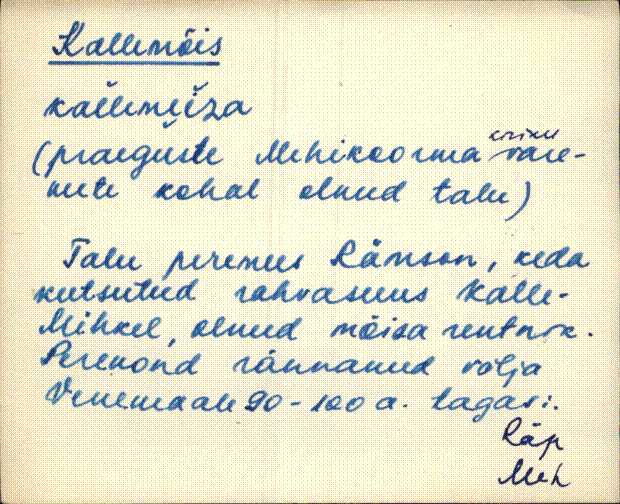 Kallemõis
kallemeiza
(praeguste Mehikoorma kiriku vare-
mete kohal olnud talu)
Talu peremees Rämson, keda
kutsutud rahvasuus Kalle-
Mihkel, olnud mõisa rentnik.
Perekond rännanud välja
Venemaale 90-100 a. tagasi.
Räp
Meh